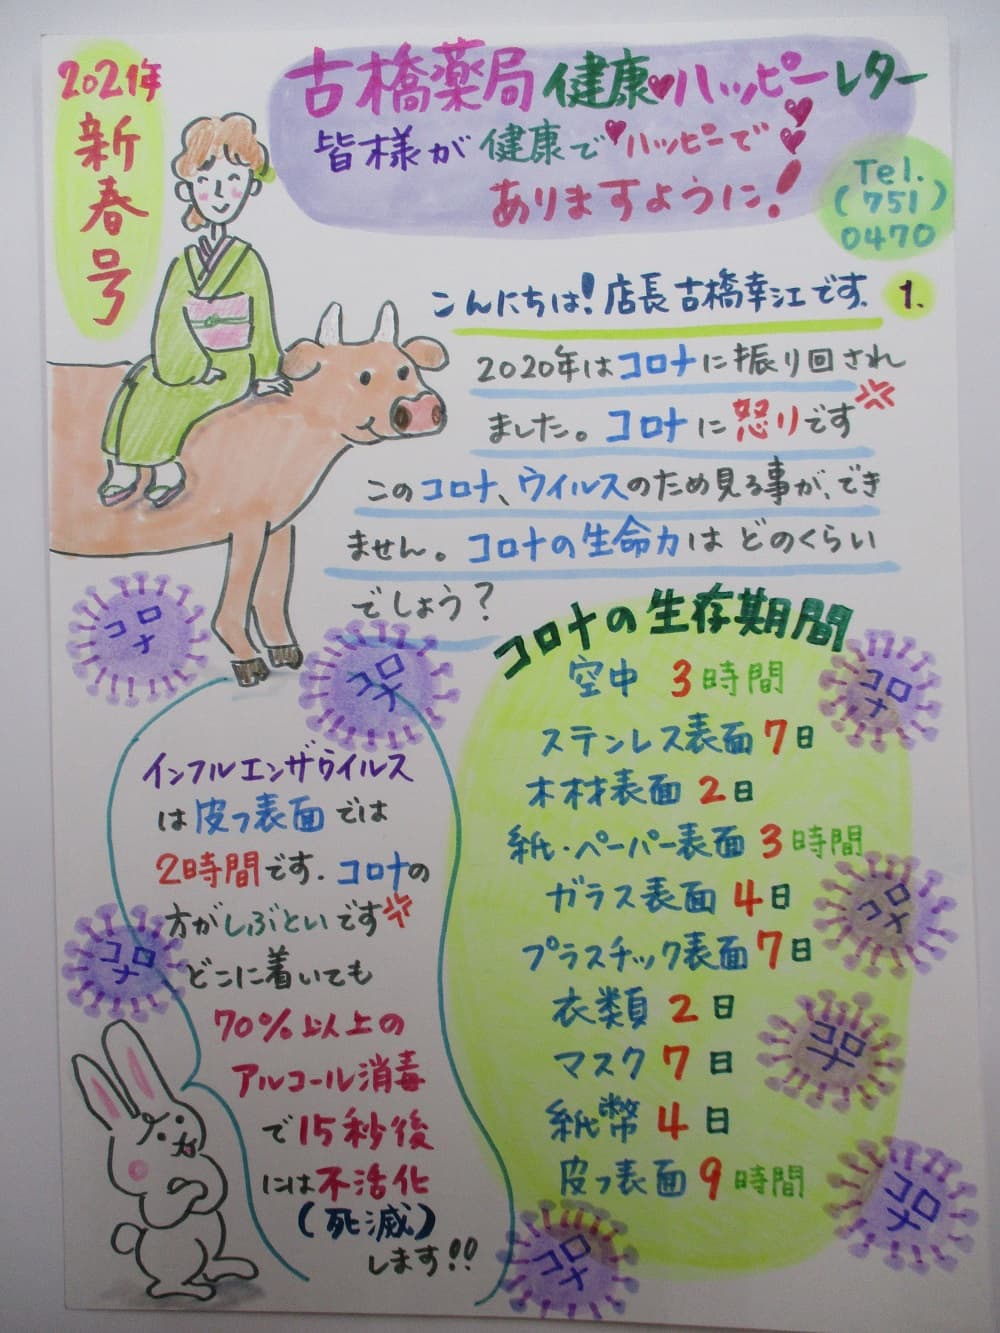 2021年
新春号
古橋薬局 健康♥ハッピーレター
皆様が健康で♥ハッピーで
ありますように!
Tel.
(751)
0470
こんにちは!店長古橋幸江です. 1.
2020年はコロナに振り回され
ました。コロナに怒りです
このコロナ、ウイルスのため見る事が、でき
ません。コロナの生命力は どのくらい
でしょう?
コロナの生存期間
空中 3時間
ステンレス表面 7日
木材表面 2日
紙・ペーパー表面 3時間
ガラス表面 4日
プラスチック表面 7日
衣類 2日
マスク 7日
紙幣 4日
皮フ表面 9時間
インフルエンザウイルス
は皮フ表面では
2時間です. コロナの
方がしぶといです
どこに着いても
70%以上の
アルコール消毒
で15秒後
には不活化
(死滅)
します!!
コロナ
コロナ
コロナ
コロナ
コロナ
コロナ
コロナ
コロナ